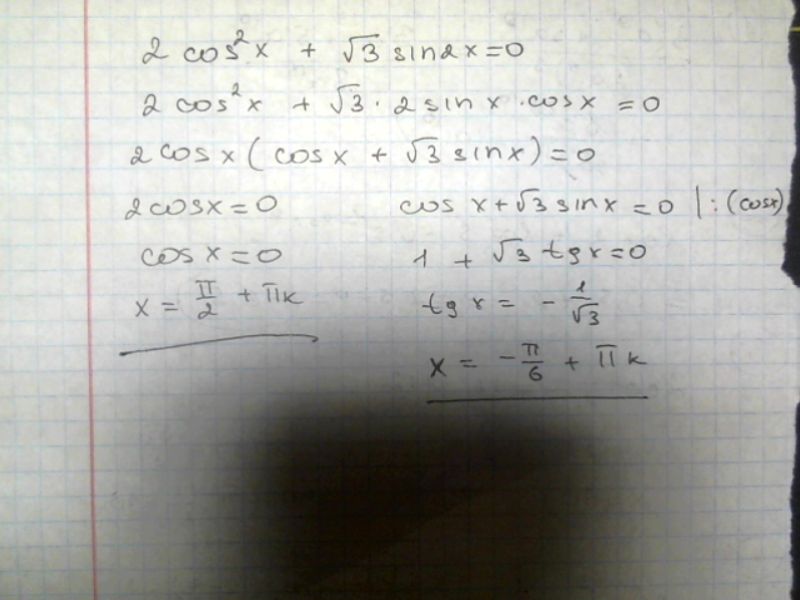 2 cos²x + √3 sin2x=0
2 cos²x + √3 · 2 sin x · cosx = 0
2cos x ( cosx + √3 sinx) = 0
2cosx = 0
cos x = 0
x = π/2 + πk
cos x+√3 sinx = 0 |:(cosx)
1 + √3 tg x=0
tg x = - 1/√3
x = -π/6 + πk